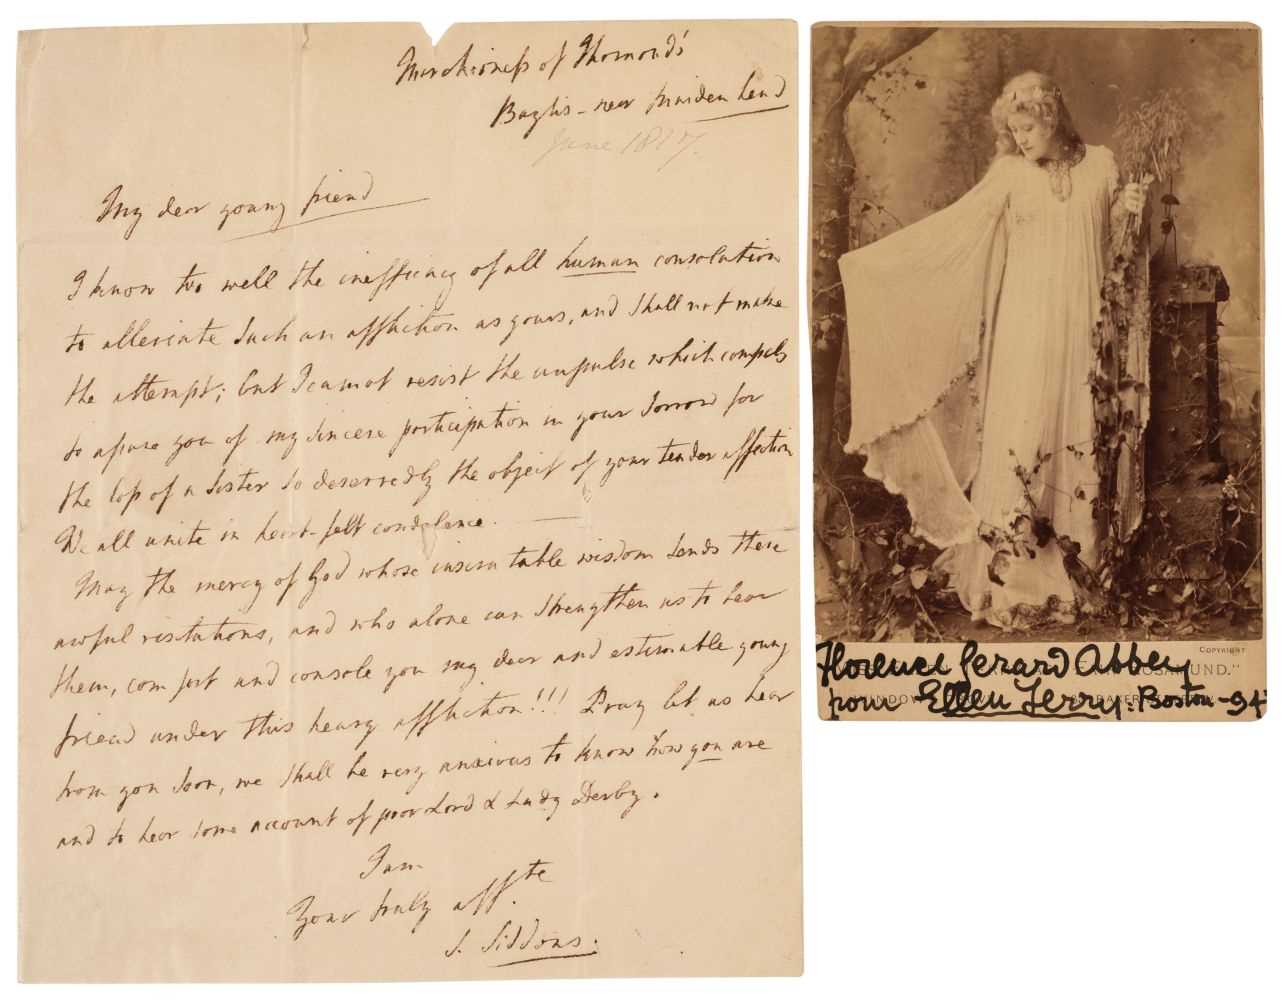 Marchioness of Thomond's
Baylis - near Maiden head
June 1817.
My dear young friend
I know too well the inefficacy of all human consolation
to alleviate Such an affliction as yours, and Shall not make
the attempt; but I cannot resist the impulse which compels
to assure you of my Sincere participation in your Sorrow for
the loss of a Sister So deservedly the object of your tender affection
We all unite in heart-felt condolence.
May the mercy of God whose inscrutable wisdom Sends these
awful visitations, and who alone can Strengthen us to bear
them, comfort and console you my dear and estimable young
friend under this heavy affliction!!! Pray let us hear
from you Soon, we Shall be very anxious to know how you are
and to hear some account of poor Lord & Lady Derby.
I am
Your truly aff.te
S. Siddons.
COPYRIGHT
ROSAMUND."
Florence Gerard Abbey
WINDOW BAKER
pour Ellen Terry: Boston - 94